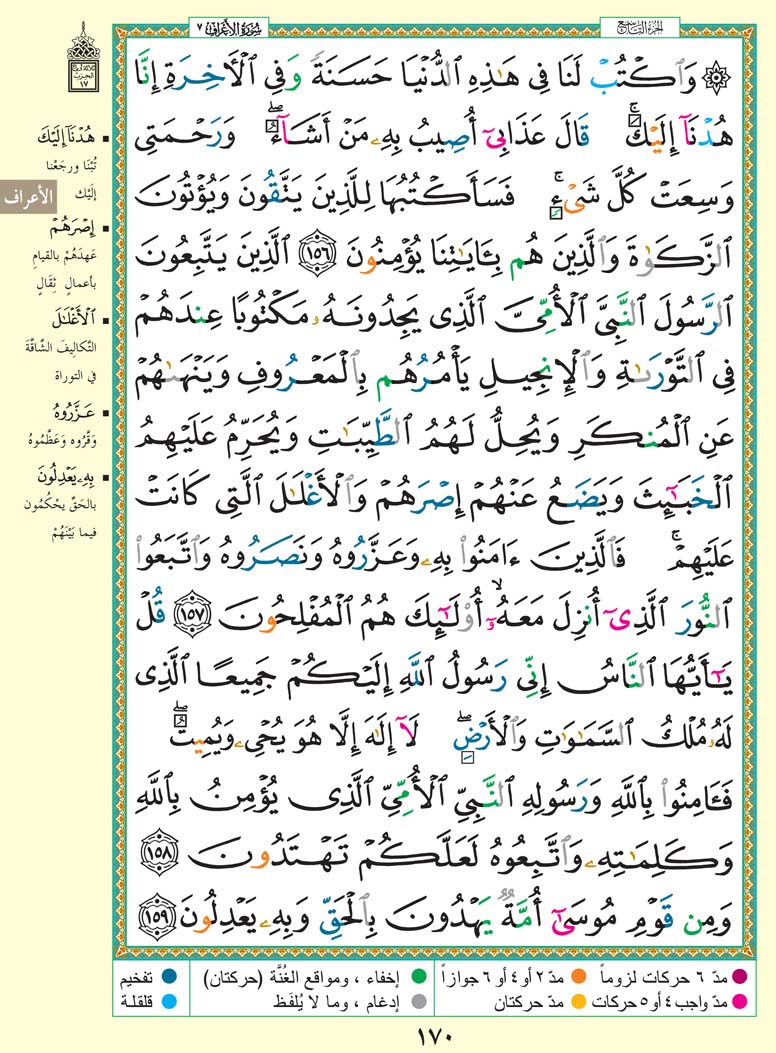 سورة الأعراف ٧
الجزء التاسع
۞ وَٱكْتُبْ لَنَا فِى هَٰذِهِ ٱلدُّنْيَا حَسَنَةً وَفِى ٱلْءَاخِرَةِ إِنَّا
هُدْنَآ إِلَيْكَ ۚ قَالَ عَذَابِىٓ أُصِيبُ بِهِۦ مَنْ أَشَآءُ ۖ وَرَحْمَتِى
وَسِعَتْ كُلَّ شَىْءٍ ۚ فَسَأَكْتُبُهَا لِلَّذِينَ يَتَّقُونَ وَيُؤْتُونَ
ٱلزَّكَوٰةَ وَٱلَّذِينَ هُم بِـَٔايَٰتِنَا يُؤْمِنُونَ ١٥٦ ٱلَّذِينَ يَتَّبِعُونَ
ٱلرَّسُولَ ٱلنَّبِىَّ ٱلْأُمِّىَّ ٱلَّذِى يَجِدُونَهُۥ مَكْتُوبًا عِندَهُمْ
فِى ٱلتَّوْرَىٰةِ وَٱلْإِنجِيلِ يَأْمُرُهُم بِٱلْمَعْرُوفِ وَيَنْهَىٰهُمْ
عَنِ ٱلْمُنكَرِ وَيُحِلُّ لَهُمُ ٱلطَّيِّبَٰتِ وَيُحَرِّمُ عَلَيْهِمُ
ٱلْخَبَٰٓئِثَ وَيَضَعُ عَنْهُمْ إِصْرَهُمْ وَٱلْأَغْلَٰلَ ٱلَّتِى كَانَتْ
عَلَيْهِمْ ۚ فَٱلَّذِينَ ءَامَنُوا۟ بِهِۦ وَعَزَّرُوهُ وَنَصَرُوهُ وَٱتَّبَعُوا۟
ٱلنُّورَ ٱلَّذِىٓ أُنزِلَ مَعَهُۥٓ ۙ أُو۟لَٰٓئِكَ هُمُ ٱلْمُفْلِحُونَ ١٥٧ قُلْ
يَٰٓأَيُّهَا ٱلنَّاسُ إِنِّى رَسُولُ ٱللَّهِ إِلَيْكُمْ جَمِيعًا ٱلَّذِى
لَهُۥ مُلْكُ ٱلسَّمَٰوَٰتِ وَٱلْأَرْضِ ۖ لَآ إِلَٰهَ إِلَّا هُوَ يُحْىِۦ وَيُمِيتُ ۖ
فَـَٔامِنُوا۟ بِٱللَّهِ وَرَسُولِهِ ٱلنَّبِىِّ ٱلْأُمِّىِّ ٱلَّذِى يُؤْمِنُ بِٱللَّهِ
وَكَلِمَٰتِهِۦ وَٱتَّبِعُوهُ لَعَلَّكُمْ تَهْتَدُونَ ١٥٨
وَمِن قَوْمِ مُوسَىٰٓ أُمَّةٌ يَهْدُونَ بِٱلْحَقِّ وَبِهِۦ يَعْدِلُونَ ١٥٩
ثلاثة أرباع
الحزب
١٧
▪ هُدْنَآ إِلَيْكَ
تُبْنَا ورجَعْنا
إلَيْك
الأعراف
▪ إِصْرَهُمْ
عَهدَهُمْ بالقيامِ
بأعمالٍ ثِقَالٍ
▪ ٱلْأَغْلَٰلَ
التّكاليفَ الشاقّةَ
في التوراة
▪ عَزَّرُوهُ
وَقَّرُوه وَعَظَّمُوهُ
▪ بِهِۦ يَعْدِلُونَ
بالحَقّ يحْكُمُون
فيما بَيْنَهُمْ
مدّ ٦ حركات لزوماً
مدّ ٢ أو ٤ أو ٦ جوازاً
إخفاء ، ومواقع الغُنَّة (حركتان)
تفخيم
مدّ واجب ٤ أو ٥ حركات
مدّ حركتان
إدغام ، وما لا يُلفَظ
قلقلة
١٧٠